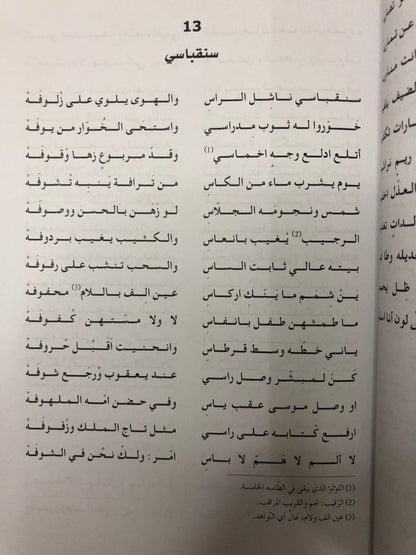 13
سنقباسي
سنقباسي ناشل الراس والهوى يلوي على زلوفه
خوروا له ثوب مدراسي واستحى الخوار من يوفه
أتلع ادلع وجه اخماسي (1) وقد مربوع زها وقوفه
يوم يشرب ماء من الكاس من ترافة ينبه تشوفه
شمس ونجومه الجلاس لو زهن بالحسن ووصوفه
الرجيب (2) يغيب بانعاس والكثيب يغيب بردوفه
بيته عالي ثابت الساس والسحب تنشب على رفوفه
ين شمم ما ينك اركاس عين الف باللام (3) محفوفه
ما طمشهن طفل بانفاس لا ولا مستهن كفوفه
ياني خطه وسط قرطاس وانحنيت اقبل حروفه
كن لمبشر وصل راسي عند يعقوب ورجع شوفه
او وصل موسى عقب ياس وفي حضن امه الملهوفه
ارفع كتابه على راسي مثل تاج الملك وزفوفه
لا ألم لا هم لا باس امر : ولك نحن في الشوفه
(1) اللؤلؤ الذي يبقى في الطاسه الخامسة.
(2) الرقيب: نجم والقريب المراقب.
(3) عين الف ولام، عال أي النواهد.